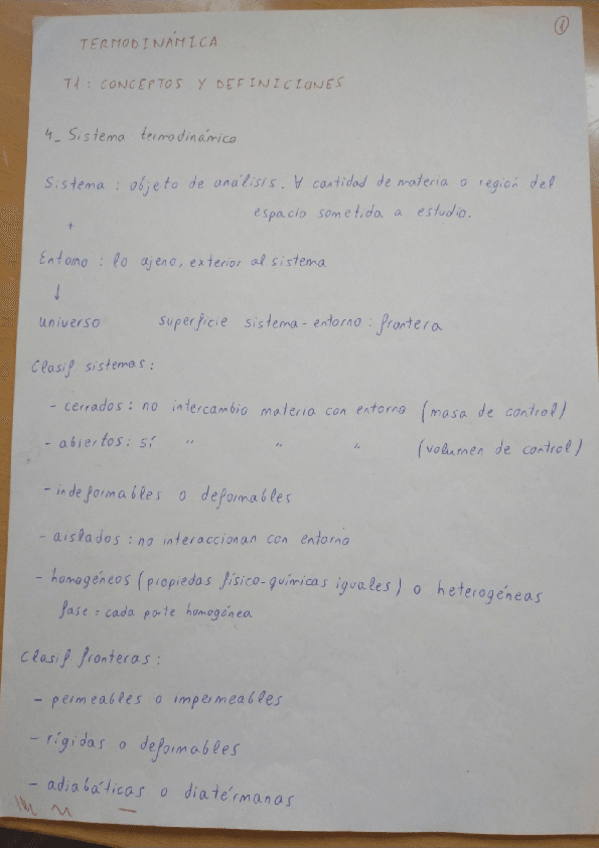 1
TERMODINÁMICA
T1: CONCEPTOS Y DEFINICIONES
4_ Sistema termodinámico
Sistema : objeto de análisis. ∀ cantidad de materia o región del
espacio sometida a estudio.
+
Entorno : lo ajeno, exterior al sistema
↓
universo superficie sistema-entorno : frontera
Clasif sistemas :
- cerrados : no intercambio materia con entorno (masa de control)
- abiertos : sí " " " (volumen de control)
- indeformables o deformables
- aislados : no interaccionan con entorno
- homogéneos (propiedas físico-químicas iguales) o heterogéneas
fase = cada parte homogénea
Clasif fronteras :
- permeables o impermeables
- rígidas o deformables
- adiabáticas o diatérmanas